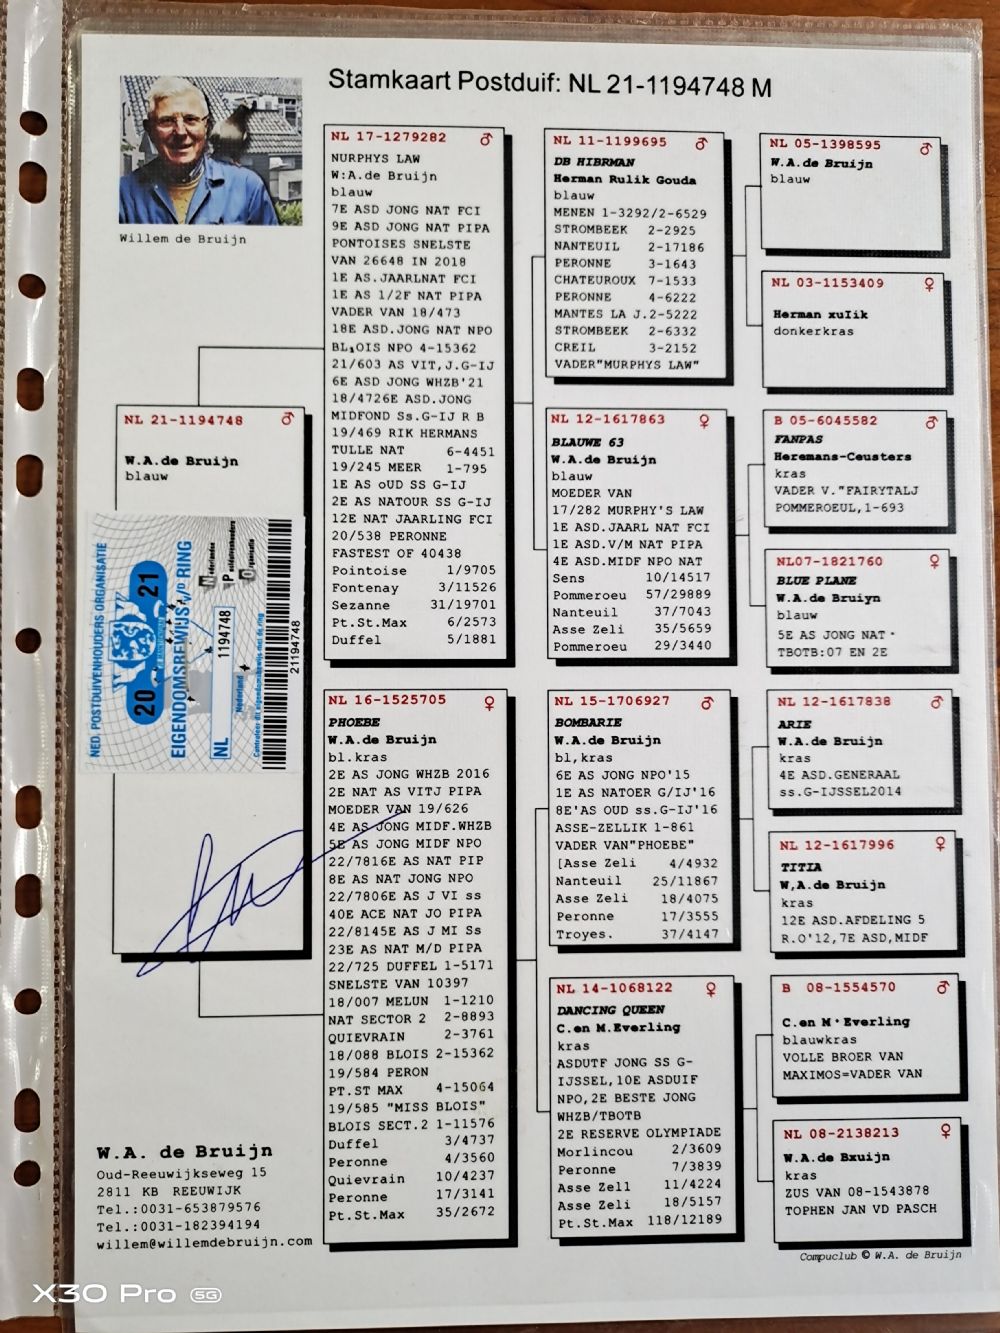 Stamkaart Postduif: NL 21-1194748 M
Willem de Bruijn
NL 21-1194748 ♂
W.A.de Bruijn
blauw
NED. POSTDUIVENHOUDERS ORGANISATIE
20 21
EIGENDOMSBEWIJS v/d RING
Nederlandse
Postduivenhouders
Organisatie
NL 1194748
Nederland
Controleer dit eigendomsbewijs met de ring
21194748
NL 17-1279282 ♂
NURPHYS LAW
W:A.de Bruijn
blauw
7E ASD JONG NAT FCI
9E ASD JONG NAT PIPA
PONTOISES SNELSTE
VAN 26648 IN 2018
1E AS.JAARLNAT FCI
1E AS 1/2F NAT PIPA
VADER VAN 18/473
18E ASD.JONG NAT NPO
BL,OIS NPO 4-15362
21/603 AS VIT,J.G-IJ
6E ASD JONG WHZB'21
18/4726E ASD.JONG
MIDFOND Ss.G-IJ R B
19/469 RIK HERMANS
TULLE NAT 6-4451
19/245 MEER 1-795
1E AS oUD SS G-IJ
2E AS NATOUR SS G-IJ
12E NAT JAARLING FCI
20/538 PERONNE
FASTEST OF 40438
Pointoise 1/9705
Fontenay 3/11526
Sezanne 31/19701
Pt.St.Max 6/2573
Duffel 5/1881
NL 16-1525705 ♀
PHOEBE
W.A.de Bruijn
bl.kras
2E AS JONG WHZB 2016
2E NAT AS VITJ PIPA
MOEDER VAN 19/626
4E AS JONG MIDF.WHZB
5E AS JONG MIDF NPO
22/7816E AS NAT PIP
8E AS NAT JONG NPO
22/7806E AS J VI ss
40E ACE NAT JO PIPA
22/8145E AS J MI Ss
23E AS NAT M/D PIPA
22/725 DUFFEL 1-5171
SNELSTE VAN 10397
18/007 MELUN 1-1210
NAT SECTOR 2 2-8893
QUIEVRAIN 2-3761
18/088 BLOIS 2-15362
19/584 PERON
PT.ST MAX 4-15064
19/585 "MISS BLOIS"
BLOIS SECT.2 1-11576
Duffel 3/4737
Peronne 4/3560
Quievrain 10/4237
Peronne 17/3141
Pt.St.Max 35/2672
NL 11-1199695 ♂
DB HIBRMAN
Herman Rulik Gouda
blauw
MENEN 1-3292/2-6529
STROMBEEK 2-2925
NANTEUIL 2-17186
PERONNE 3-1643
CHATEUROUX 7-1533
PERONNE 4-6222
MANTES LA J.2-5222
STROMBEEK 2-6332
CREIL 3-2152
VADER"MURPHYS LAW"
NL 12-1617863 ♀
BLAUWE 63
W.A.de Bruijn
blauw
MOEDER VAN
17/282 MURPHY'S LAW
1E ASD.JAARL NAT FCI
1E ASD.V/M NAT PIPA
4E ASD.MIDF NPO NAT
Sens 10/14517
Pommeroeu 57/29889
Nanteuil 37/7043
Asse Zeli 35/5659
Pommeroeu 29/3440
NL 15-1706927 ♂
BOMBARIE
W.A.de Bruijn
bl,kras
6E AS JONG NPO'15
1E AS NATOER G/IJ'16
8E'AS OUD ss.G-IJ'16
ASSE-ZELLIK 1-861
VADER VAN"PHOEBE"
[Asse Zeli 4/4932
Nanteuil 25/11867
Asse Zeli 18/4075
Peronne 17/3555
Troyes. 37/4147
NL 14-1068122 ♀
DANCING QUEEN
C.en M.Everling
kras
ASDUTF JONG SS G-
IJSSEL,10E ASDUIF
NPO,2E BESTE JONG
WHZB/TBOTB
2E RESERVE OLYMPIADE
Morlincou 2/3609
Peronne 7/3839
Asse Zell 11/4224
Asse Zeli 18/5157
Pt.St.Max 118/12189
NL 05-1398595 ♂
W.A.de Bruijn
blauw
NL 03-1153409 ♀
Herman xuIik
donkerkras
B 05-6045582 ♂
FANPAS
Heremans-Ceusters
kras
VADER V."FAIRYTALJ
POMMEROEUL,1-693
NL07-1821760 ♀
BLUE PLANE
W.A.de Bruiyn
blauw
5E AS JONG NAT·
TBOTB:07 EN 2E
NL 12-1617838 ♂
ARIE
W.A.de Bruijn
kras
4E ASD.GENERAAL
ss.G-IJSSEL2014
NL 12-1617996 ♀
TITIA
W,A.de Bruijn
kras
12E ASD.AFDELING 5
R.O'12,7E ASD,MIDF
B 08-1554570 ♂
C.en M·Everling
blauwkras
VOLLE BROER VAN
MAXIMOS=VADER VAN
NL 08-2138213 ♀
W.A.de Bxuijn
kras
ZUS VAN 08-1543878
TOPHEN JAN VD PASCH
W.A. de Bruijn
Oud-Reeuwijkseweg 15
2811 KB REEUWIJK
Tel.:0031-653879576
Tel.:0031-182394194
willem@willemdebruijn.com
Compuclub © W.A. de Bruijn
X30 Pro 5G